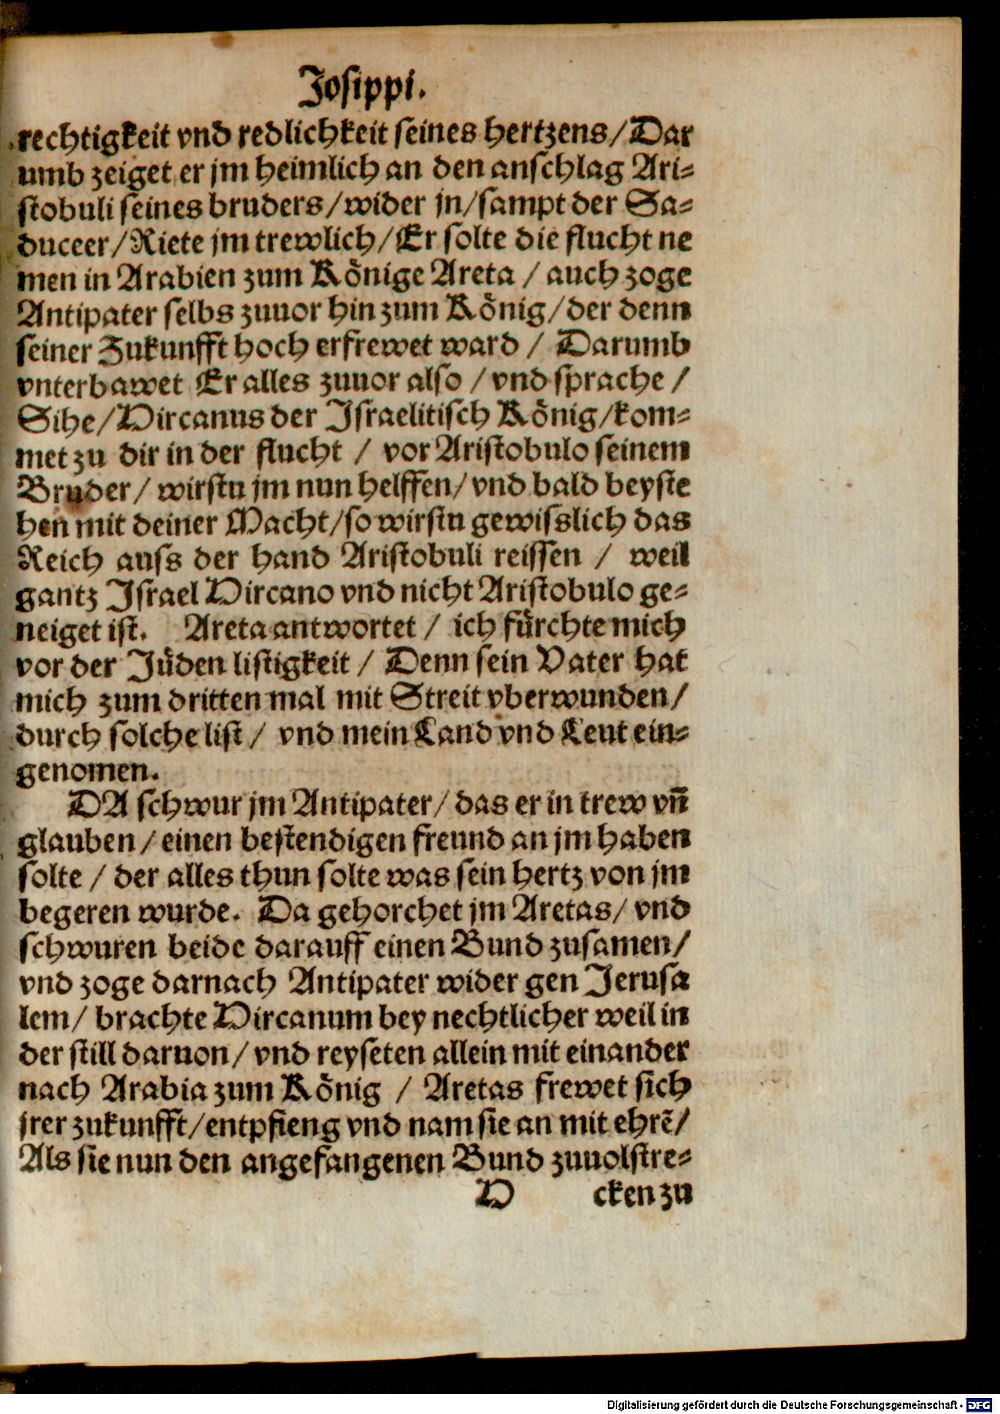 Josippi.
rechtigkeit vnd redlichkeit seines hertzens/Dar
umb zeiget er jm heimlich an den anschlag Ari⸗
stobuli seines bruders/wider jn/sampt der Sa⸗
duceer/Riete jm trewlich/Er solte die flucht ne
men in Arabien zum Könige Areta / auch zoge
Antipater selbs zuuor hin zum König/der denn
seiner Zukunfft hoch erfrewet ward / Darumb
vnterbawet Er alles zuuor also / vnd sprache /
Sihe/Hircanus der Israelitisch König/kom⸗
met zu dir in der flucht / vor Aristobulo seinem
Bruder/ wirstu jm nun helffen/ vnd bald beyste
hen mit deiner Macht/so wirstu gewisslich das
Reich auss der hand Aristobuli reissen / weil
gantz Israel Hircano vnd nicht Aristobulo ge⸗
neiget ist. Areta antwortet / ich fürchte mich
vor der Jüden listigkeit / Denn sein Vater hat
mich zum dritten mal mit Streit vberwunden/
durch solche list / vnd mein Land vnd Leut ein⸗
genomen.
DA schwur jm Antipater/ das er in trew vn̄
glauben / einen bestendigen freund an jm haben
solte / der alles thun solte was sein hertz von jm
begeren wurde. Da gehorchet jm Aretas/ vnd
schwuren beide darauff einen Bund zusamen/
vnd zoge darnach Antipater wider gen Jerusa
lem/ brachte Hircanum bey nechtlicher weil in
der still daruon/ vnd reyseten allein mit einander
nach Arabia zum König / Aretas frewet sich
jrer zukunfft/entpfieng vnd nam sie an mit ehrē/
Als sie nun den angefangenen Bund zuuolstre⸗
H cken zu
Digitalisierung gefördert durch die Deutsche Forschungsgemeinschaft - DFG